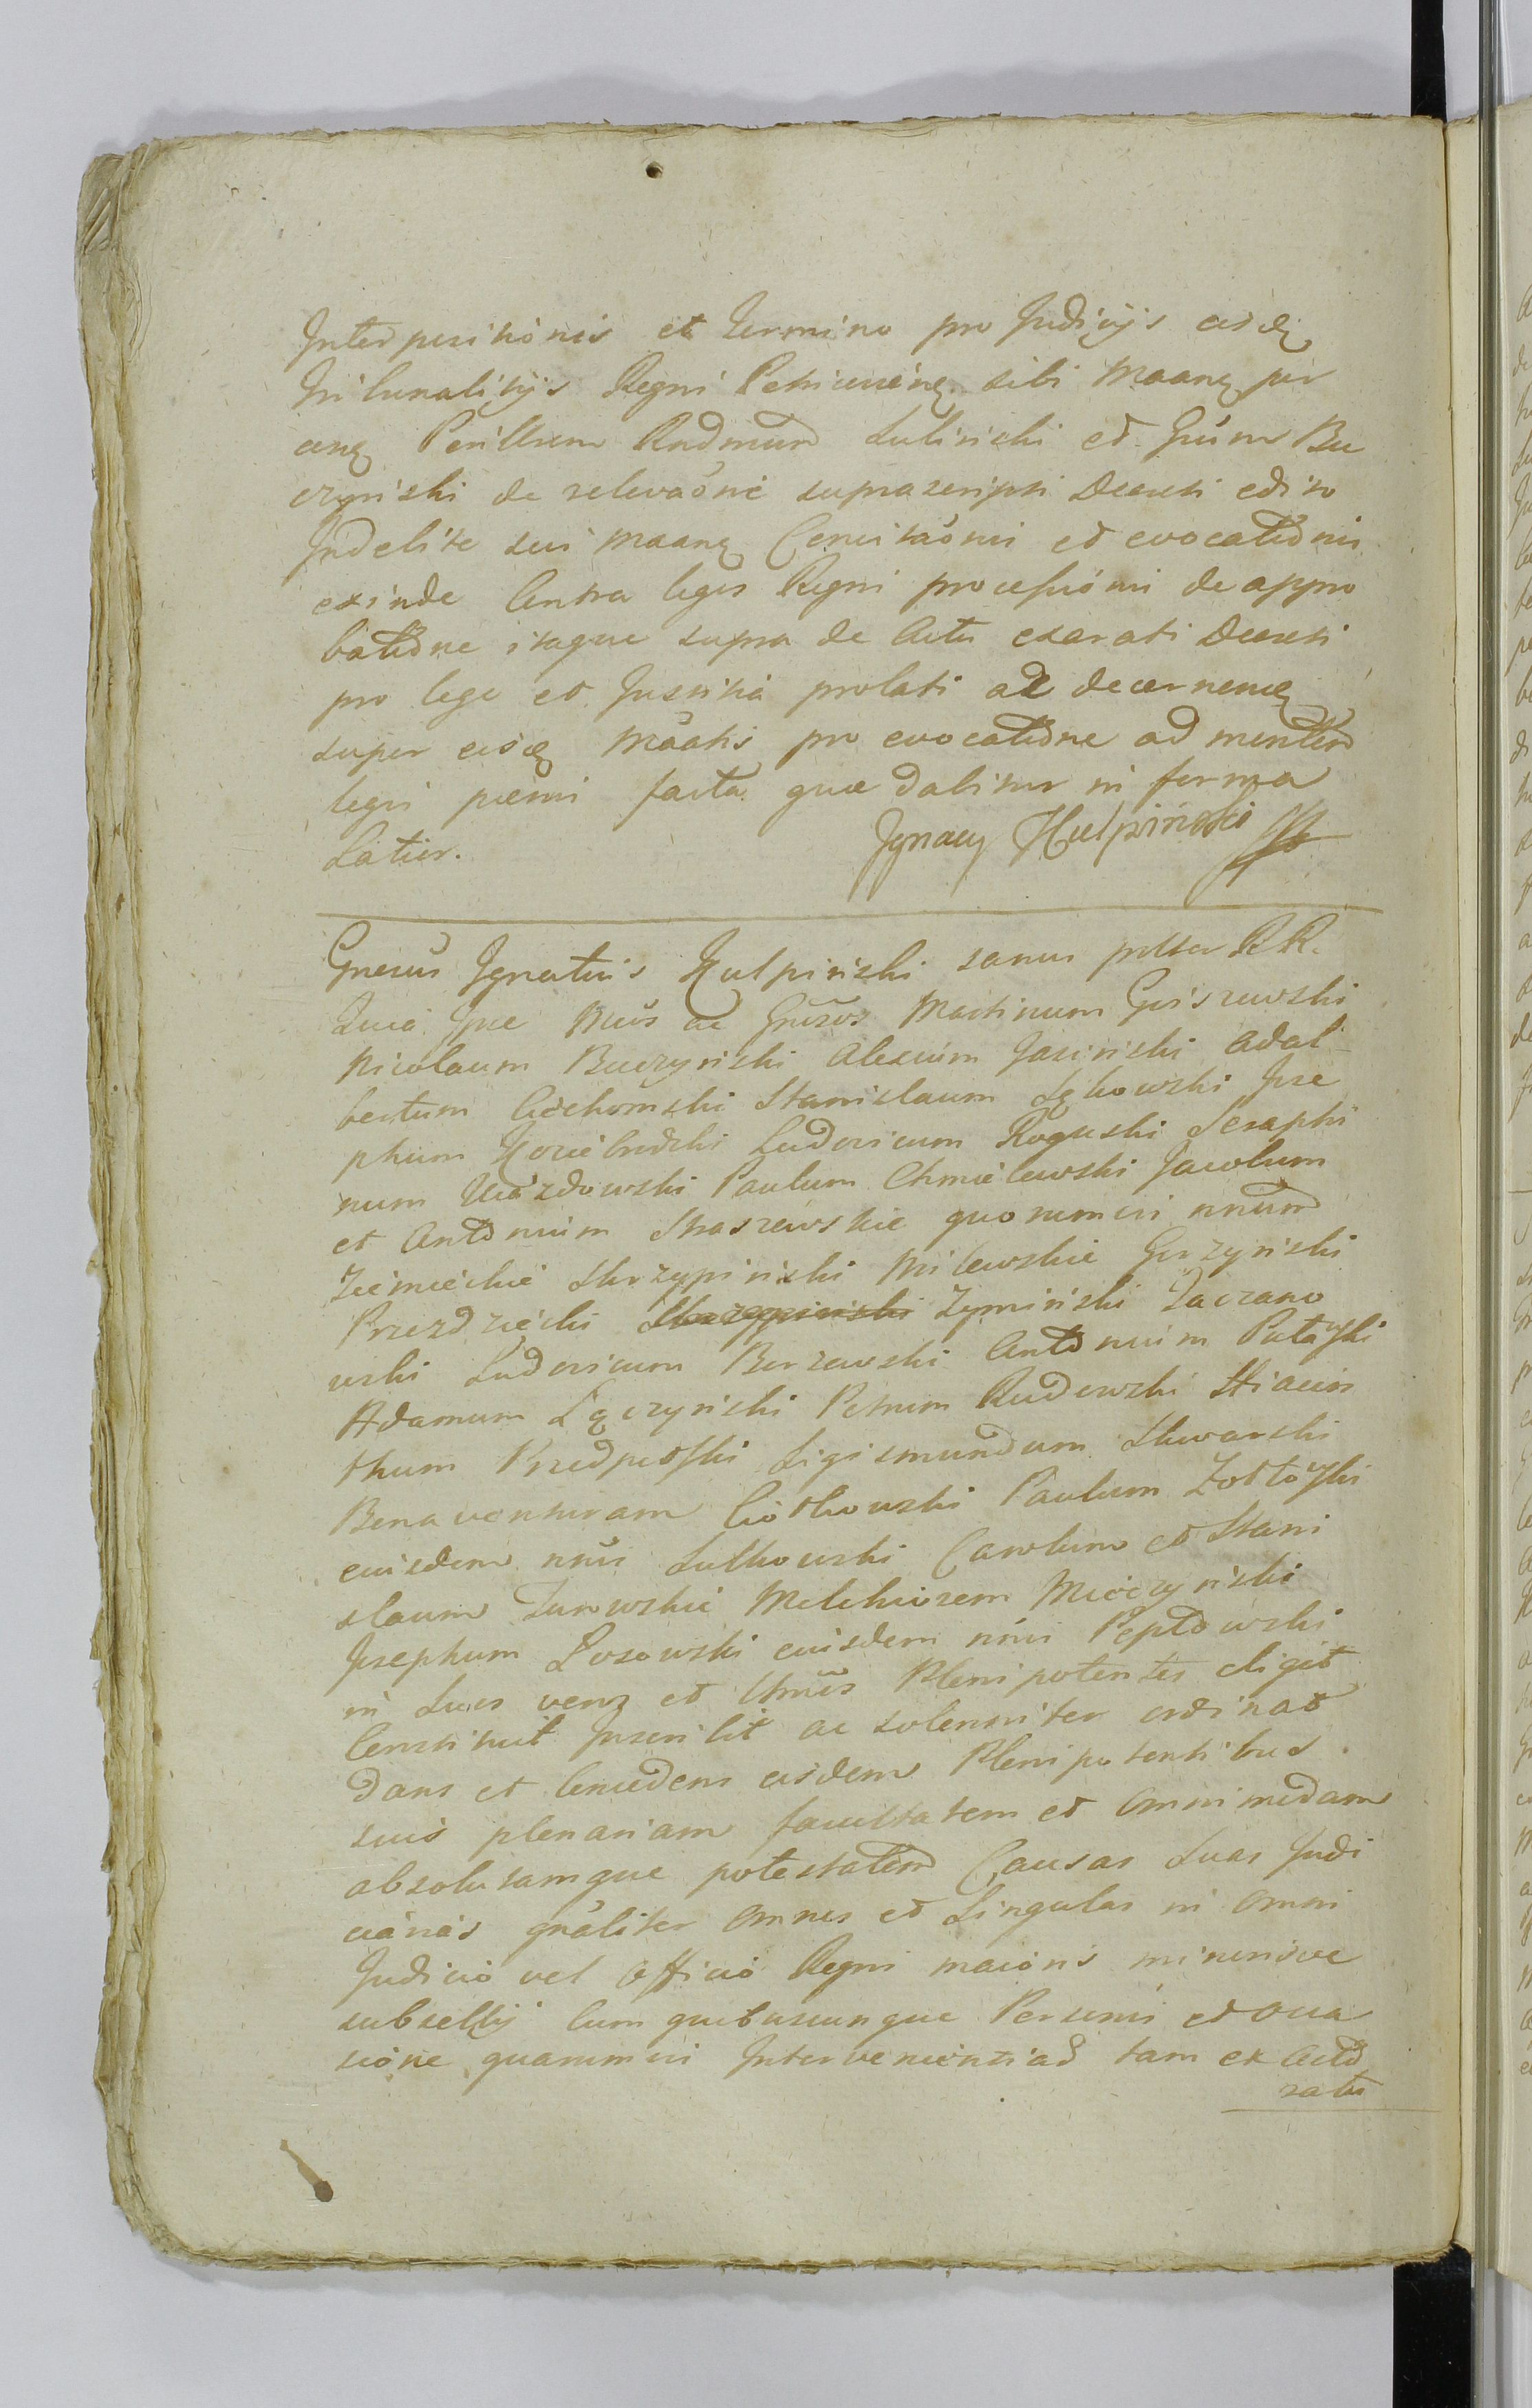 Interpositionis et Termino pro Judicijs eisdē
Tribunalitijs Regni Petricovien. sibi Maanę per
eunę Perillrem Rndmum Lubiński et Grum Bu
czyński de relevaone suprascripti Decreti edito
Indebite sui Maanę Concitaoni et evocationi
exinde Contra leges Regni processioni de appro
batione itaque supra de Actu exarati Decreti
pro lege et Justitia prolati ac decernenę
super eisdę Maatis pro evocatione ad mentem
legis poenis facta quae dabitur in forma
Latior. Ignacy Kulpiński

Gnesus Ignatius Kulpiński sanus pttter RR.
Quia Ipse Mcos ac Grusos Martinum Goiszewski
Nicolaum Buczyński Alexium Jasiński Adal
bertum Ciechomski Stanislaum Łękowski Jose
phum Koziebrodzki Ludovicum Roguski Seraphi
num Uiazdowski Paulum Chmielewski Jacobum
et Antonium Staszewskie quorumvi nnum
Ziemięckie Skrzypiński Milewskie Gorzyński
Przezdziecki Skrzypiński Zymiński Zaczano
wski Ludovicum Borzewski Antonium Putayski
Adamum Łączyński Petrum Rudowski Hiacin
thum Przedpełski Sigismundum Skwarski
Bonaventuram Ciołkowski Paulum Żółtoyski
euisdem nnis Sutkowski Carolum et Stani
slaum Turowskie Melchiorem Mioczyński
Josephum Łosowski euisdem nnis Pepłowski
in Suos veroz et Ltmos Plenipotentes eligit
Constituit Inscribit ac solenniter ordinat
Dans et Concedens eisdem Plenipotentibus
suis plenariam facultatem et Omnimodam
absolutamque potestatem Causas Suas Judi
ciarias gnaliter Omnes et Singulas in Omni
Judicio vel Officio Regni maioris minorisve
subsellij Cum quibuscunque Personis et Occa
sione quarumvis Intervenientiad tam ex Acto
ratu